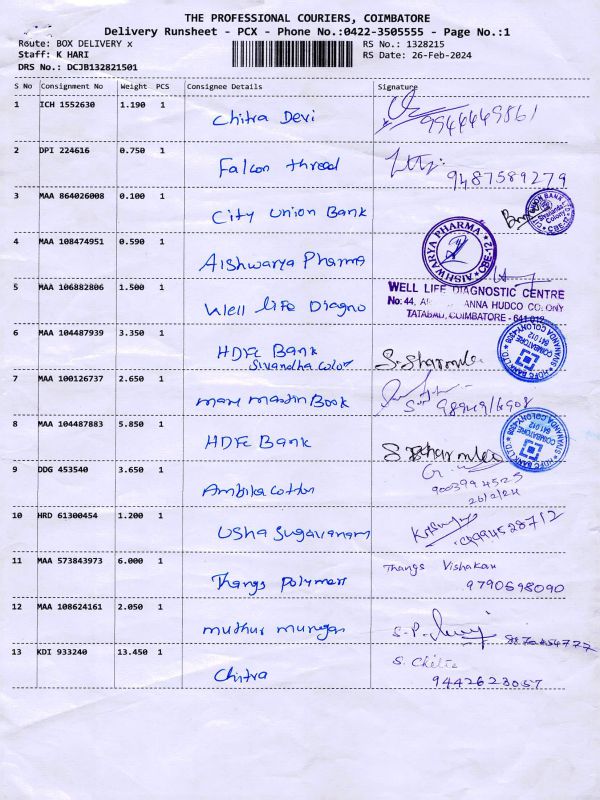 THE PROFESSIONAL COURIERS, COIMBATORE
Delivery Runsheet - PCX - Phone No.:0422-3505555 - Page No.:1
Route: BOX DELIVERY x RS No.: 1328215
Staff: K HARI RS Date: 26-Feb-2024
DRS No.: DCJB132821501
S No Consignment No Weight PCS Consignee Details Signature
1 ICH 1552630 1.190 1 Chitra Devi 9944449561
2 DPI 224616 0.750 1 Falcon thread 9487589279
3 MAA 864026008 0.100 1 City Union Bank
4 MAA 108474951 0.590 1 Aishwarya Pharma AISHWARYA PHARMA CBE-12
5 MAA 106882806 1.500 1 Well life Diagno WELL LIFE DIAGNOSTIC CENTRE
No: 44, ANNA HUDCO COLONY
TATABAD, COIMBATORE - 641 012
6 MAA 104487939 3.350 1 HDFC Bank S. Sharmila HDFC BANK LTD. COIMBATORE 641 012
Sivandha colony
7 MAA 100126737 2.650 1 Book
8 MAA 104487883 5.850 1 HDFC Bank HDFC BANK LTD. COIMBATORE 641 012
9 DDG 453540 3.650 1 Ambika cotton 9003994525
26/2/24
10 HRD 61300454 1.200 1 Usha Sugavanam
11 MAA 573843973 6.000 1 Thangs polymers Thangs Vishakan
9790598090
12 MAA 108624161 2.050 1 muthur murugan S.P.
13 KDI 933240 13.450 1 Chitra S. Chitra
9442623057